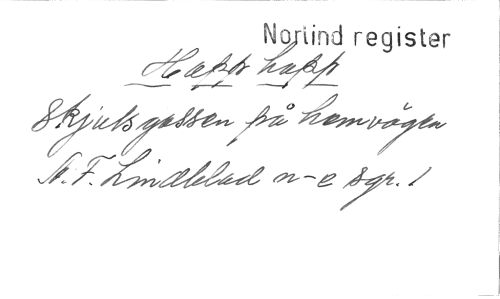 Norlind register
Happ happ
Skjutsgossen på hemvägen
A. F. Lindblad n-e sgr. 1